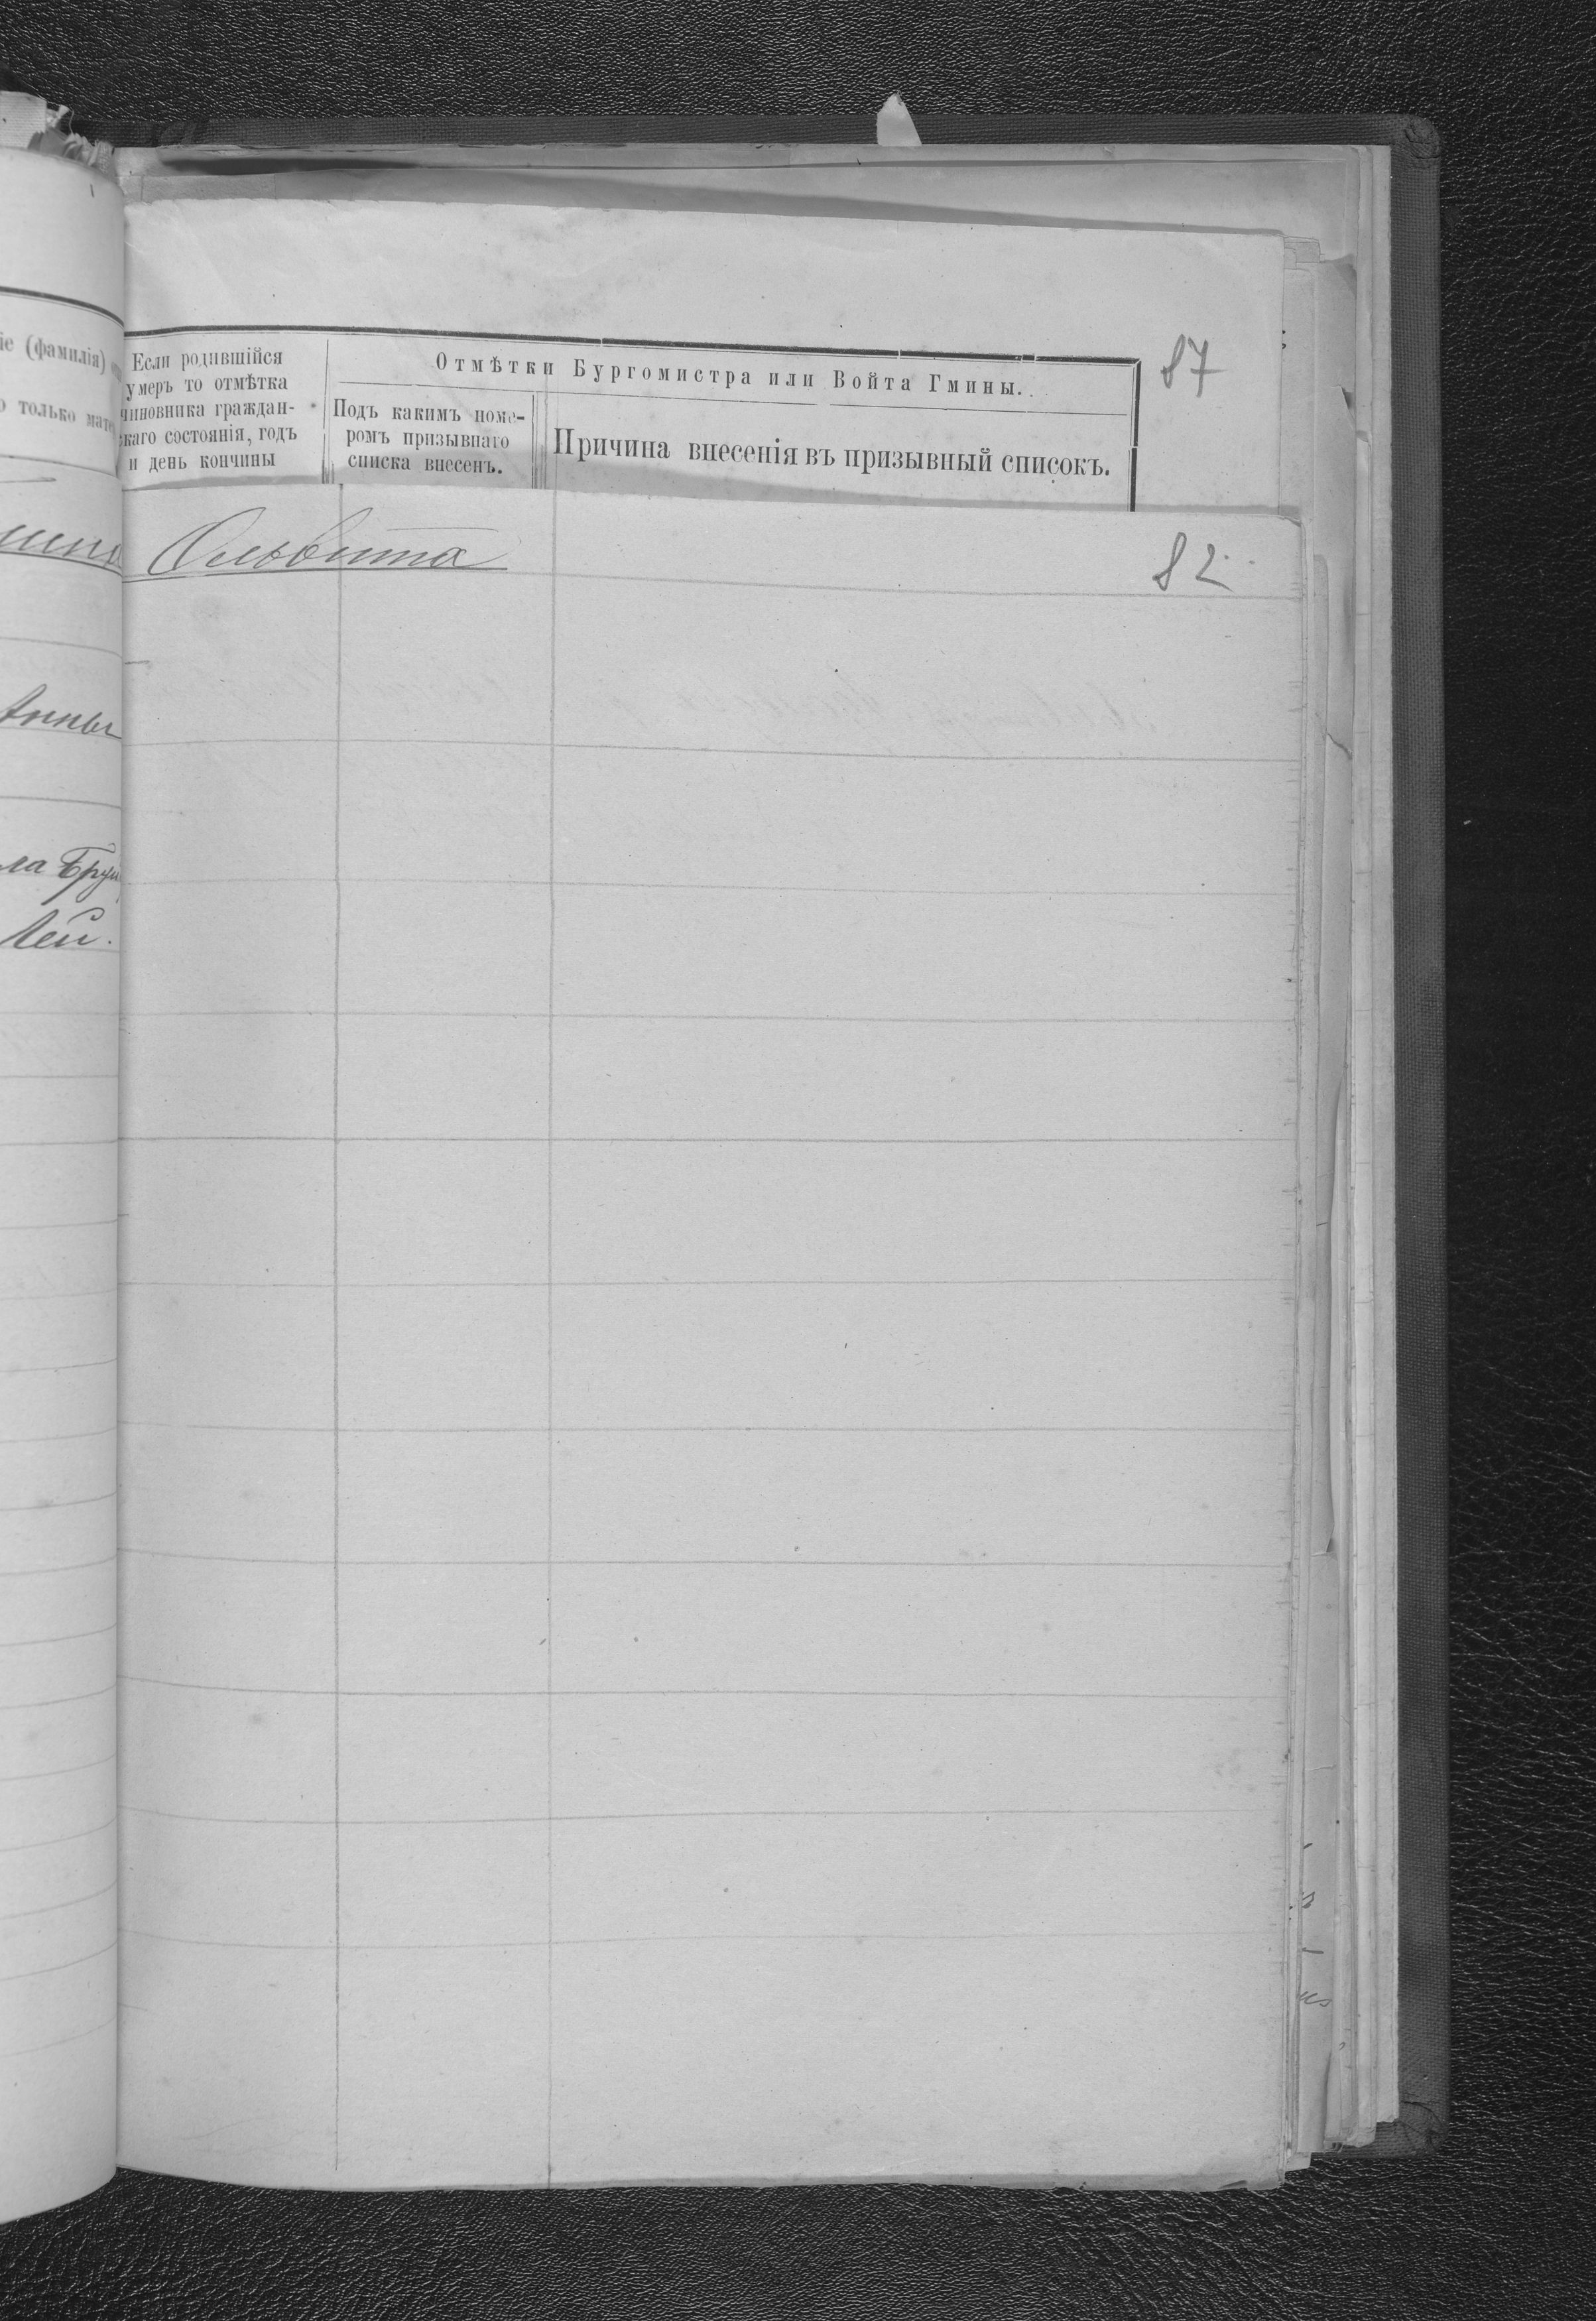 іе (фамилія)
только мате
Анны
ла Брун
Лей.
Если родившійся
умеръ то отмѣтка
чиновника граждан-
скаго состоянія, годъ
и день кончины
Отмѣтки Бургомистра или Войта Гмины.
Подъ какимъ номе-
ромъ призывнаго
списка внесенъ.
Причина внесенія въ призывный списокъ.
87
Ольвита
82